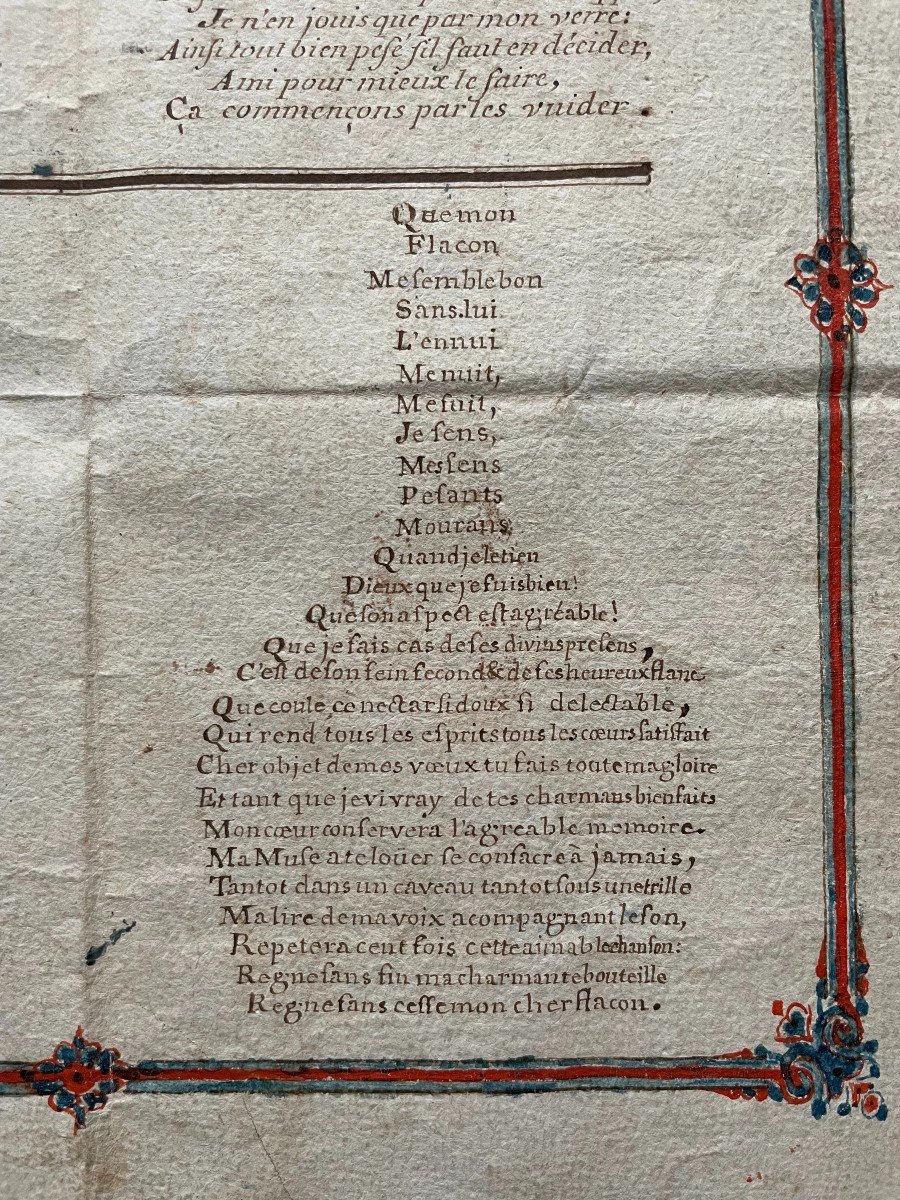 Je n'en jouis que par mon verre:
Ainsi tout bien pesé s'il faut en décider,
Ami pour mieux le faire,
Ça commençons par les vuider.
Que mon
Flacon
Me semble bon
Sans lui
L'ennui
Me nuit,
Me suit,
Je sens,
Mes sens
Pesants
Mourans
Quand je le tien
Dieux que je suis bien!
Que son aspect est agréable!
Que je fais cas de ses divins presens,
C'est de son sein fecond & de ses heureux flanc
Que coule ce nectar si doux si delectable,
Qui rend tous les esprits tous les cœurs satisfait
Cher objet de mes vœux tu fais toute ma gloire
Et tant que je vivray de tes charmans bienfaits
Mon cœur conservera l'agreable memoire.
Ma Muse a te loüer se consacre à jamais,
Tantot dans un caveau tantot sous une trille
Ma lire de ma voix acompagnant le son,
Repetera cent fois cette aimable chanson:
Regne sans fin ma charmante bouteille
Regne sans cesse mon cher flacon.